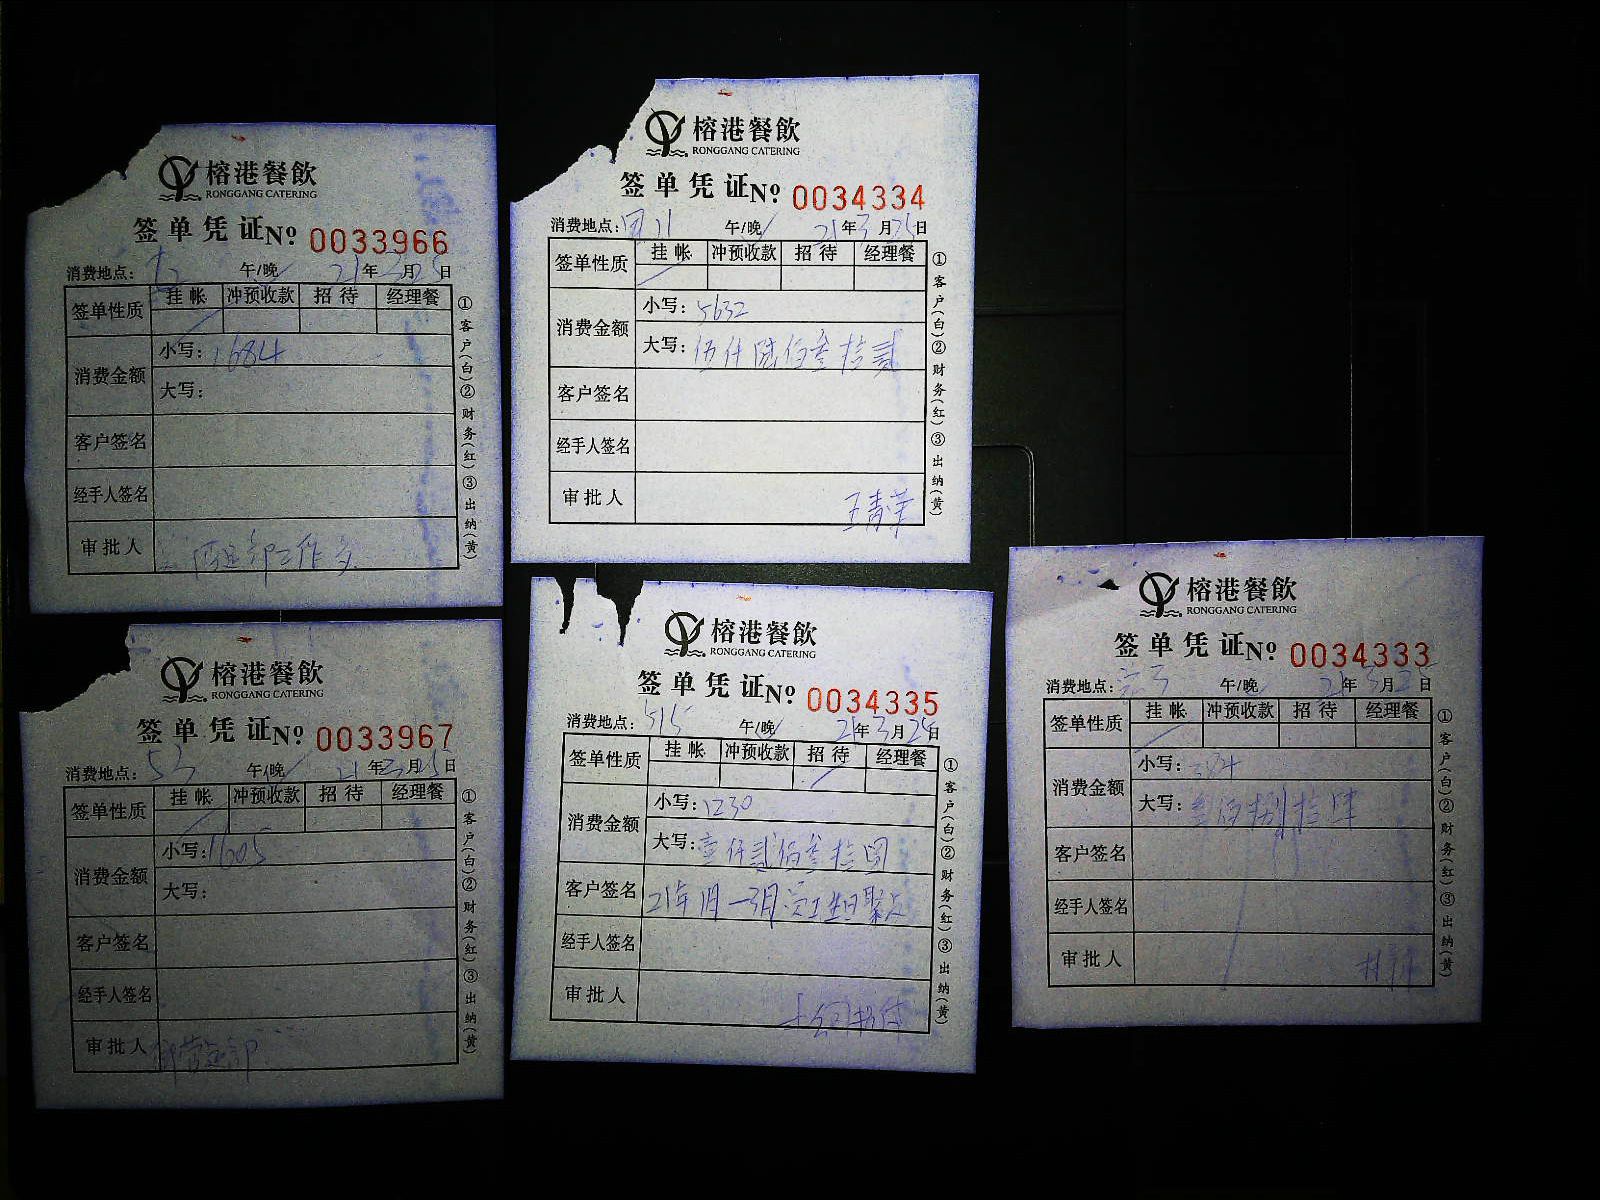 榕港餐飲
RONGGANG CATERING
签单凭证No 0033966
消费地点: 午/晚 21年3月25日
签单性质 挂帐 冲预收款 招待 经理餐
消费金额 小写: 1684
大写:
客户签名
经手人签名
审批人
①客户(白)②财务(红)③出纳(黄)
榕港餐飲
RONGGANG CATERING
签单凭证No 0034334
消费地点: 午/晚 21年3月25日
签单性质 挂帐 冲预收款 招待 经理餐
消费金额 小写: 5632
大写: 伍仟陆佰叁拾贰
客户签名
经手人签名
审批人 王青
①客户(白)②财务(红)③出纳(黄)
榕港餐飲
RONGGANG CATERING
签单凭证No 0033967
消费地点: 午/晚 21年3月25日
签单性质 挂帐 冲预收款 招待 经理餐
消费金额 小写: 1605
大写:
客户签名
经手人签名
审批人
①客户(白)②财务(红)③出纳(黄)
榕港餐飲
RONGGANG CATERING
签单凭证No 0034335
消费地点: 515 午/晚 21年3月25日
签单性质 挂帐 冲预收款 招待 经理餐
消费金额 小写: 1230
大写: 壹仟贰佰叁拾圆
客户签名 21年1月-3月员工生日聚
经手人签名
审批人
①客户(白)②财务(红)③出纳(黄)
榕港餐飲
RONGGANG CATERING
签单凭证No 0034333
消费地点: 午/晚 21年3月 日
签单性质 挂帐 冲预收款 招待 经理餐
消费金额 小写: 384
大写: 叁佰捌拾肆
客户签名
经手人签名
审批人
①客户(白)②财务(红)③出纳(黄)